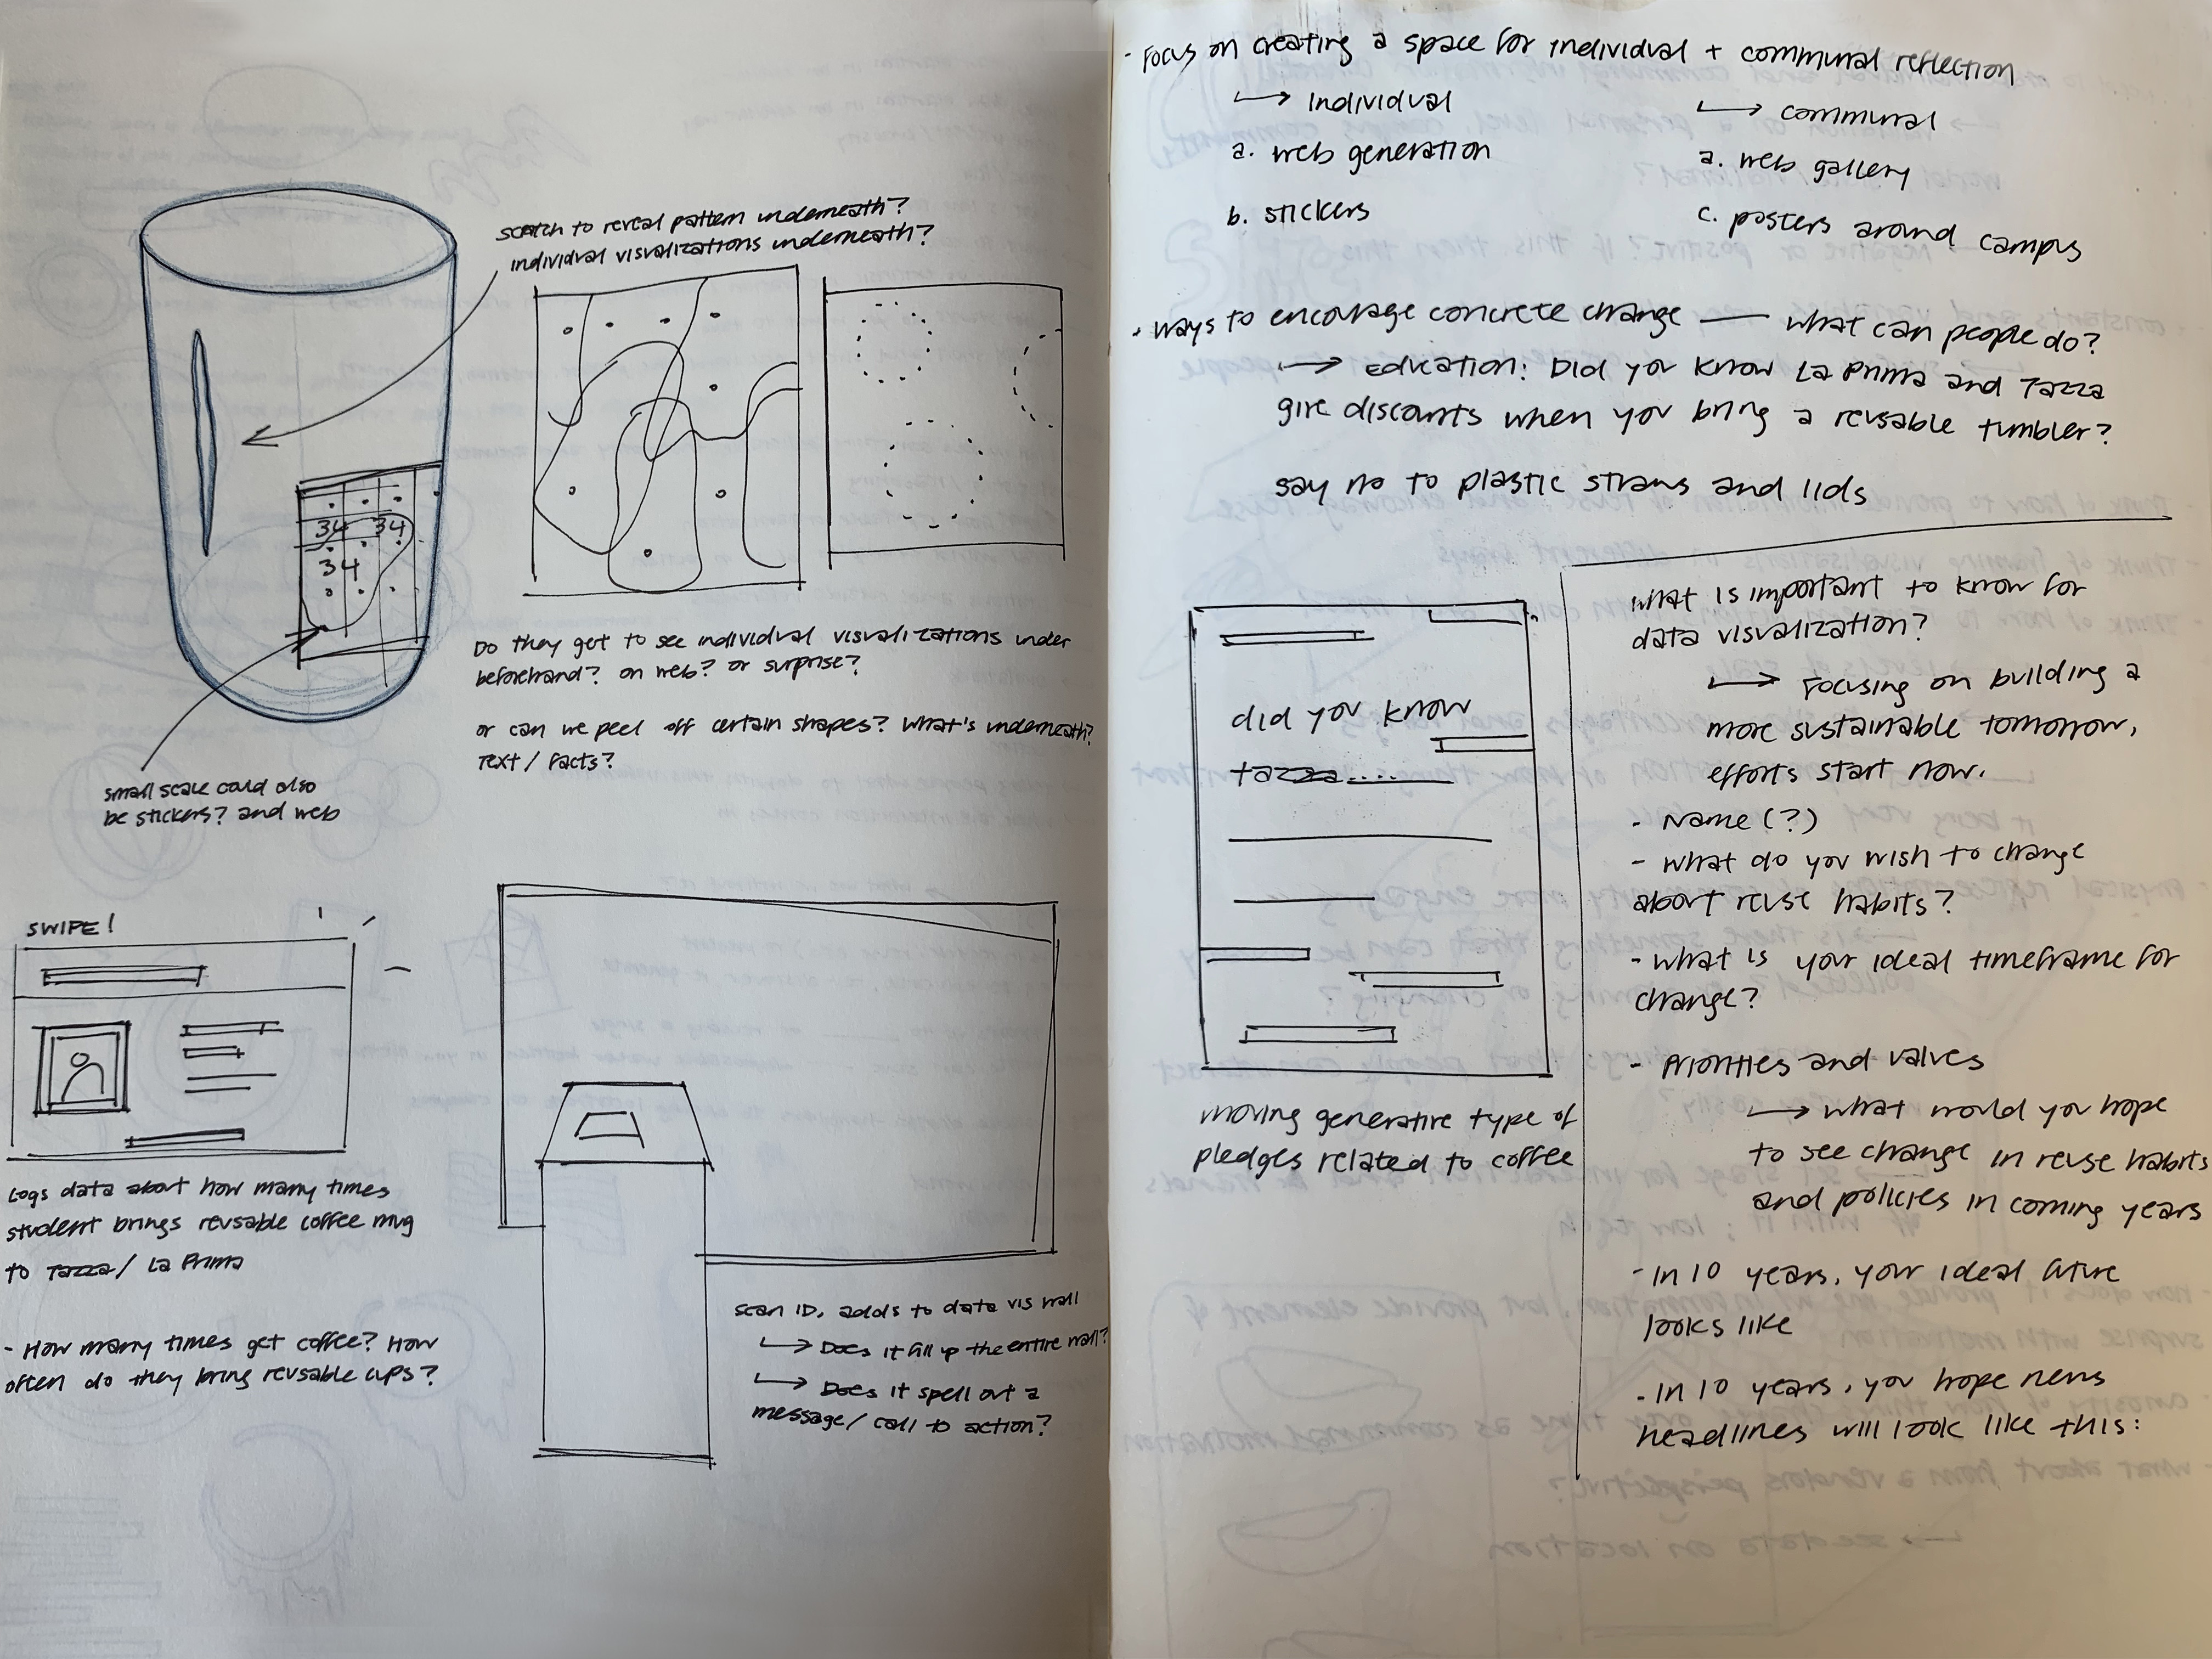 scratch to reveal pattern underneath?
individual visualizations underneath?
34 34
34
Do they get to see individual visualizations under
beforehand? on web? or surprise?
or can we peel off certain shapes? What's underneath?
Text / Facts?
small scale could also
be stickers? and web
SWIPE!
Logs data about how many times
student brings reusable coffee mug
to Tazza / La Prima
- How many times get coffee? How
often do they bring reusable cups?
scan ID, adds to data vis wall
→ Does it fill up the entire wall?
→ Does it spell out a
message / call to action?
- Focus on creating a space for individual + communal reflection
→ Individual
a. web generation
b. stickers
→ communal
a. web gallery
c. posters around campus
• ways to encourage concrete change — what can people do?
→ Education: Did you know La Prima and Tazza
give discounts when you bring a reusable tumbler?
say no to plastic straws and lids
did you know
tazza....
moving generative type of
pledges related to coffee
What is important to know for
data visualization?
→ Focusing on building a
more sustainable tomorrow,
efforts start now.
- Name (?)
- What do you wish to change
about reuse habits?
- What is your ideal timeframe for
change?
- Priorities and values
→ what would you hope
to see change in reuse habits
and policies in coming years
- In 10 years, your ideal future
looks like
- In 10 years, you hope news
headlines will look like this: